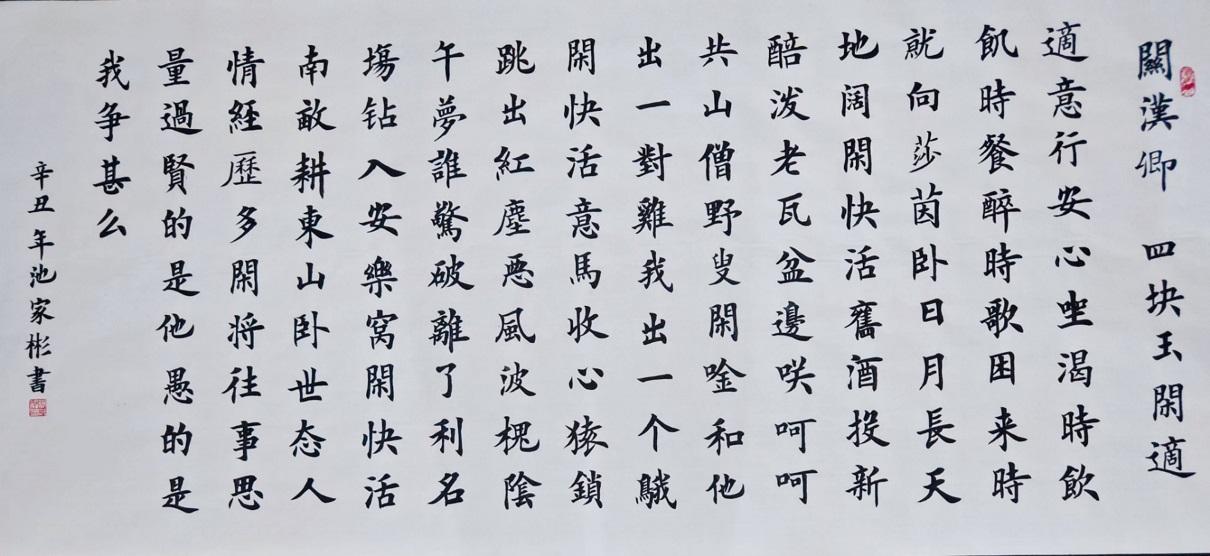 關漢卿 四块玉閑適
適意行安心坐渴時飲
飢時餐醉時歌困来時
就向莎茵卧日月長天
地阔閑快活舊酒投新
醅泼老瓦盆邊咲呵呵
共山僧野叟閑唫和他
出一對雞我出一个鵝
閑快活意馬收心猿鎖
跳出紅塵恶風波槐陰
午夢誰驚破離了利名
場钻入安樂窝閑快活
南畝耕東山卧世态人
情經歷多閑将往事思
量過賢的是他愚的是
我争甚么
辛丑年池家彬書